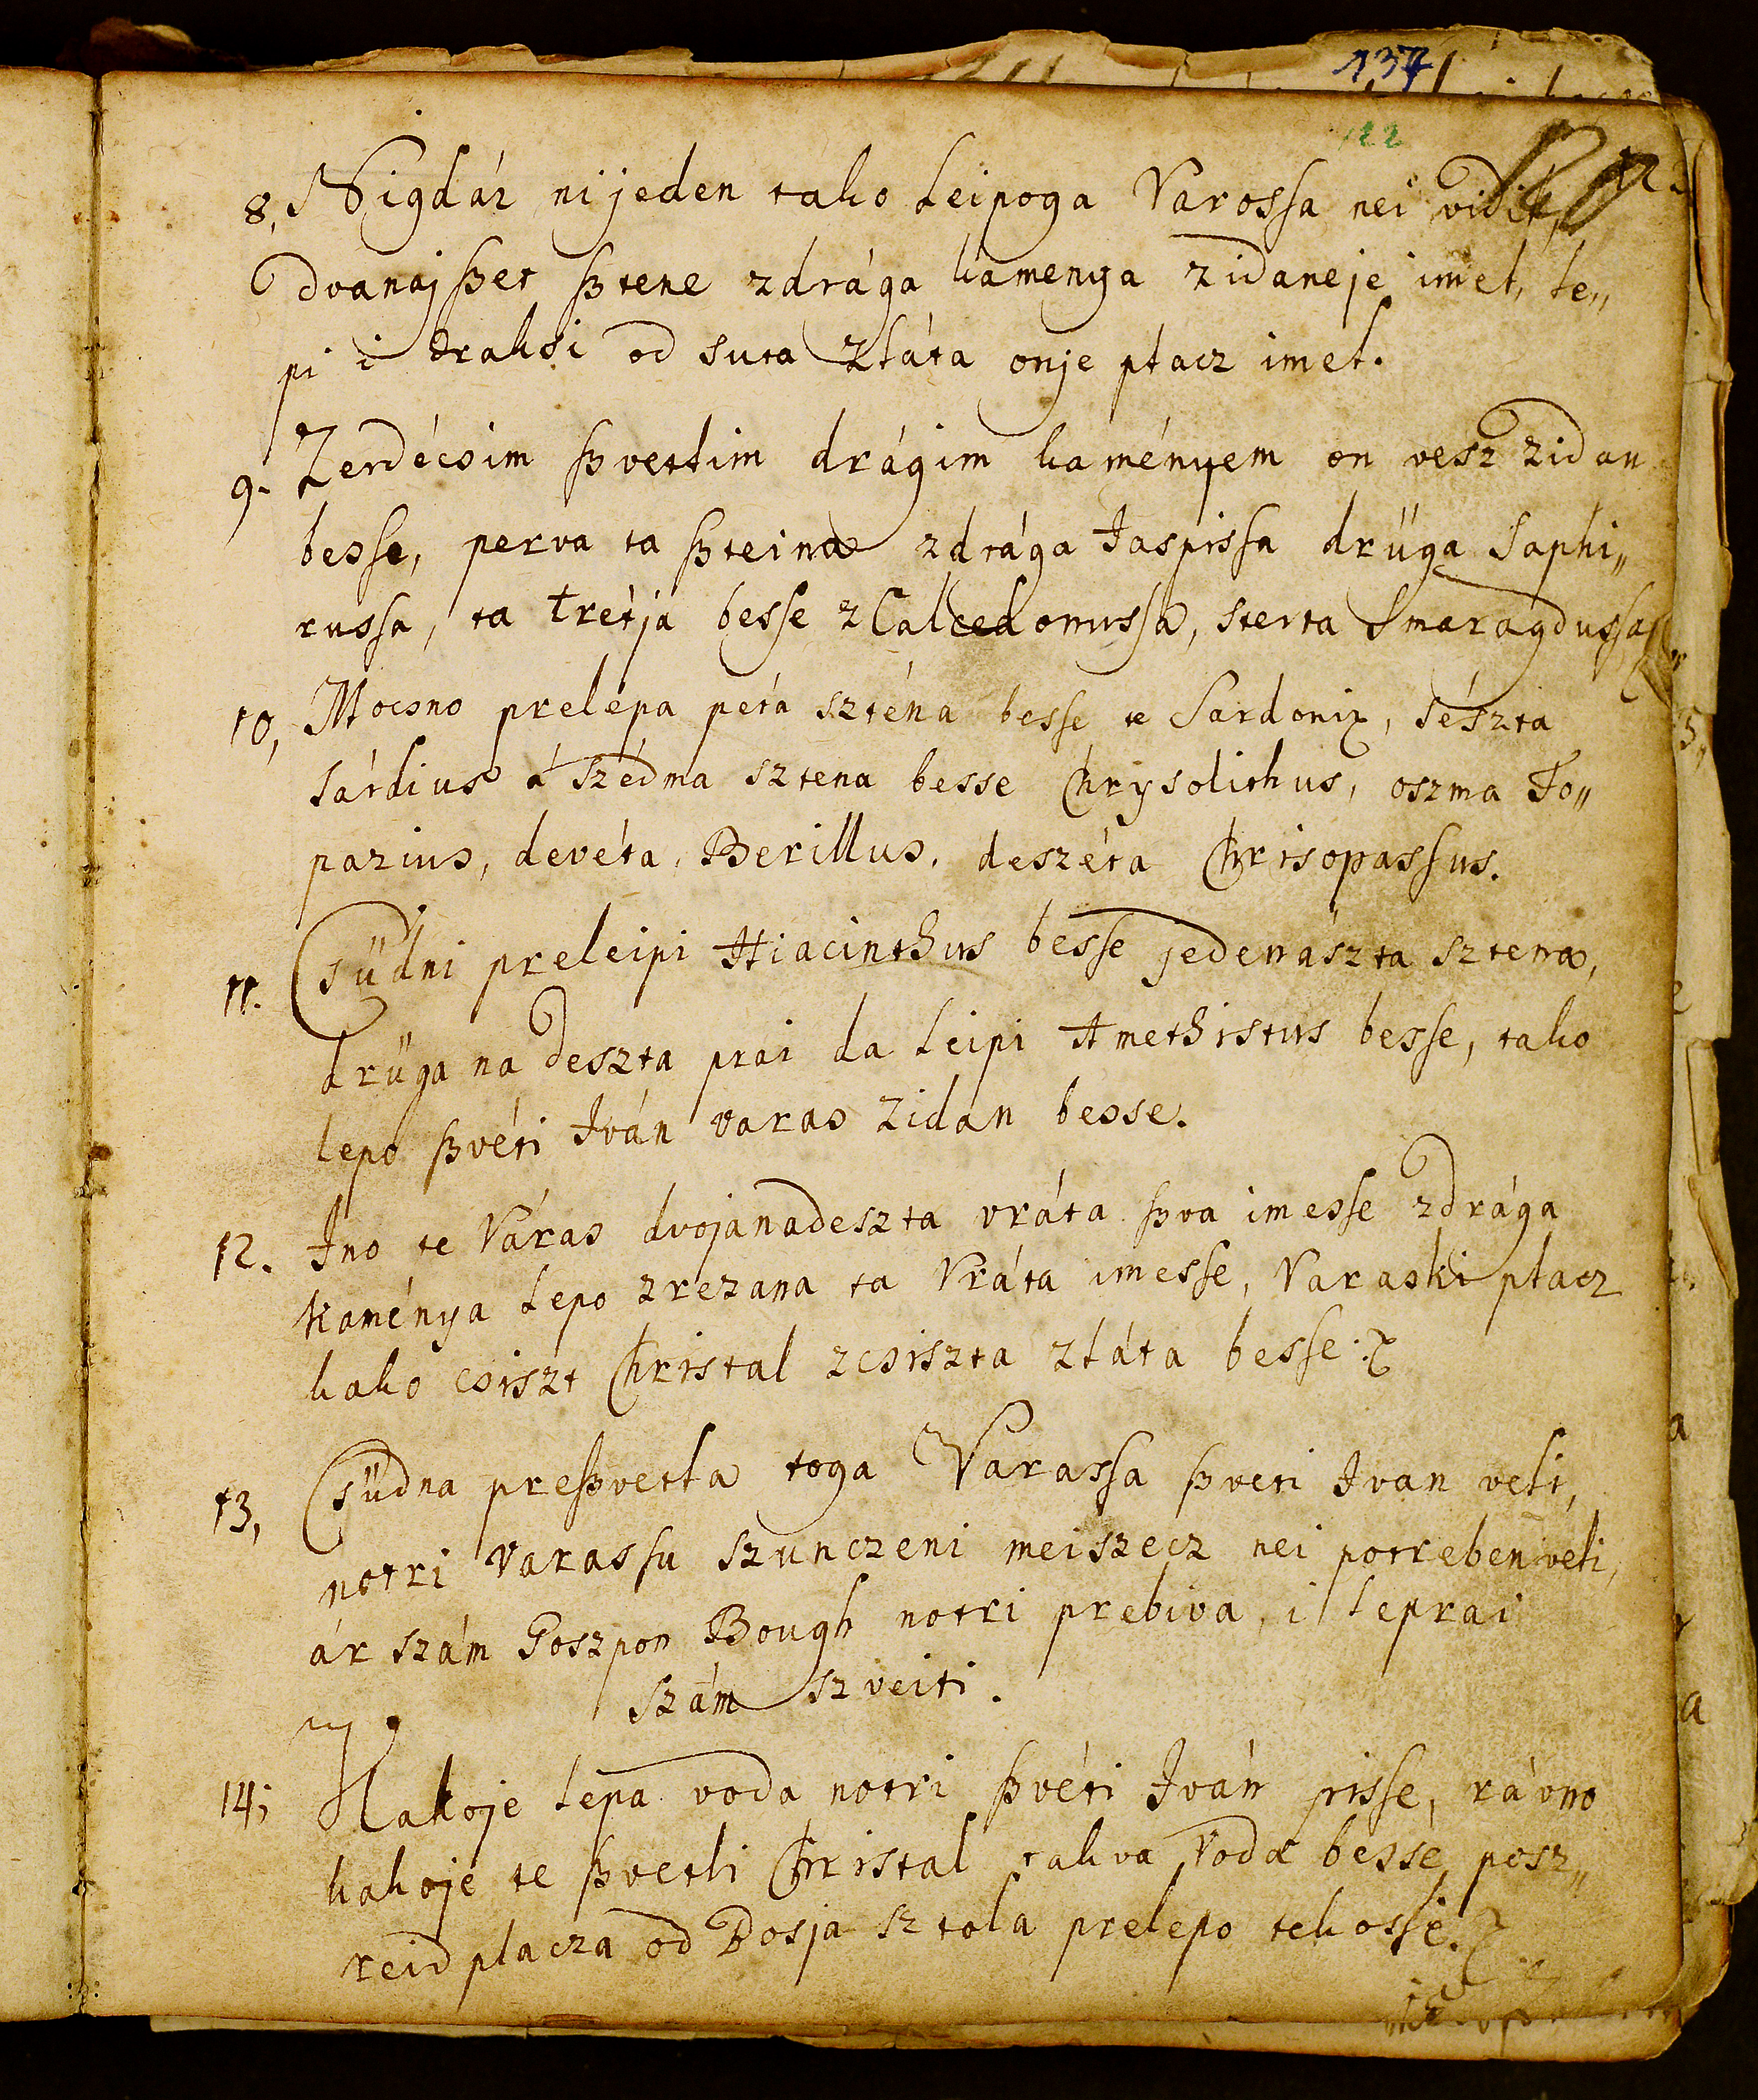 137
122
8, Nigdár nijeden tako leipoga Varossa nei vidil,
dvanajßet ßtene zdrága kamenya zidaneje imel, le„
pi i draksi od suta zláta onje plácz imel.
9. Zerdécsim ßvetlim drágim kaményem on vesz zidan
besse, perva ta ßteina zdrága Jaspissa drüga Saphi„
russa, ta tretjá besse z Calcedonussa, sterta Smaragdussa
10, Mocsno prelépa péta szténa besse te Sardonix, sészta
Sárdius á szédma sztena besse Chrysolithus, oszma To„
pazius, devéta, Berillus, deszéta Chrisopassus.
11. Csüdni preleipi Hiacinthus besse jedenászta sztena,
drüga na deszta prai da leipi Amethistus besse, tako
lepo ßvéti Iván varas zidán besse.
12. Ino te Váras dvojanadeszta vráta ßva imesse zdrága
kaménya lepo zrezana ta Vráta imesse, Varaski plácz
kako csiszt Christal zcsiszta zláta besse.
13, Csüdna preßvetla toga Varassa ßveti Ivan veli,
notri Varassu szunczeni meiszecz nei potreben veli,
ár szám Goszpon Bough notri prebiva, i leprai
szám szveiti.
14; Kakoje lepa voda notri ßvéti Iván pisse, rávno
kakoje te ßvetli Christal takva voda besse, posz„
reid placza od Bosja sztola prelepo tekosse.